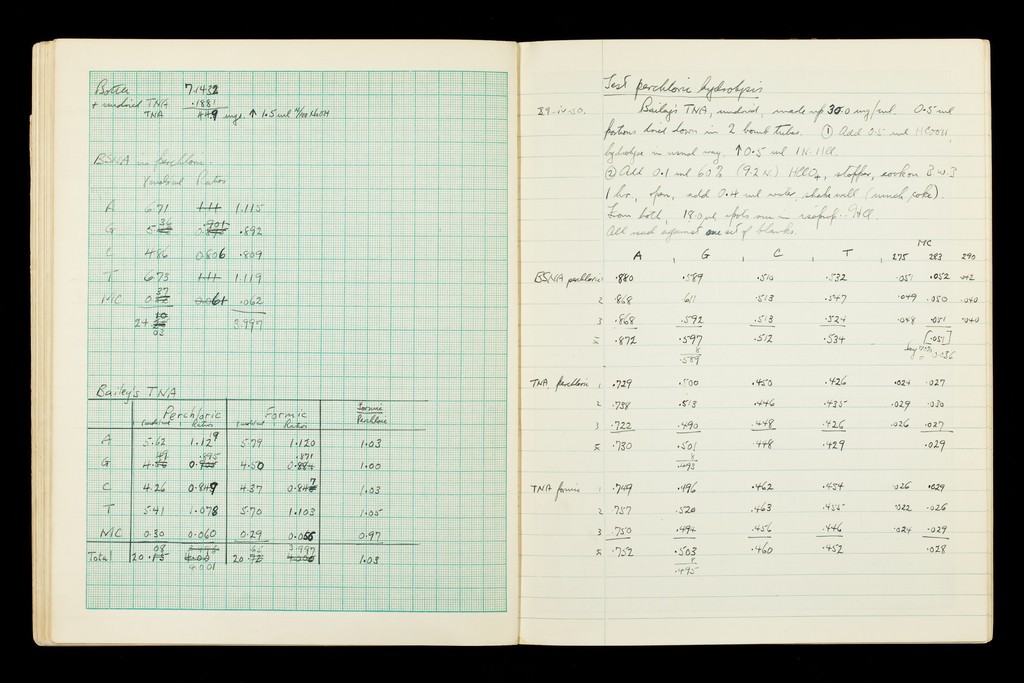 Bottle 7.1432
+ undried TNA .1881
TNA 449 mgs. ↑ 1.5 ml N/100 NaOH
BSNA in perchloric.
μmol/ml Ratios
A 6.71 1.11 1.115
G 5.36 0.901 .892
C 4.86 0.806 .809
T 6.73 1.11 1.119
MC 0.37 0.061 .062
24.10 3.997
03
Bailey's TNA
Perchloric Formic Formic
Ratios Ratios Perchloric
A 5.62 1.129 5.79 1.120 1.03
49 .895 .871
G 4.56 0.905 4.50 0.884 1.00
C 4.26 0.849 4.37 0.847 1.03
T 5.41 1.078 5.70 1.103 1.05
MC 0.30 0.060 0.29 0.056 0.97
08 65 3.997
Total 20.15 4.00 20.72 4.000 1.03
4.001
Test perchloric hydrolysis
29-iv-50. Bailey's TNA, undried, made up 30.0 mg/ml. 0.5 ml
portions dried down in 2 bomb tubes. ① Add 0.5 ml HCOOH,
hydrolyse in usual way. ↑ 0.5 ml 1N. HCl.
② Add 0.1 ml 60% (9.2 N) HClO4, stopper, cook on B.W.B
1 hr, open, add 0.4 ml water, shake well (much coke).
From both, 18.0 μl spots run in isoprop.-HCl.
All read against one set of blanks.
MC
A G C T 275 283 290
BSNA perchloric 1 .880 .589 .510 .532 .051 .052 .042
2 .868 .611 .513 .547 .049 .050 .040
3 .868 .592 .513 .524 .048 .051 .040
x̄ .872 .597 .512 .534 [.051]
8
.589 .036
TNA perchloric 1 .729 .500 .450 .426 .024 .027
2 .738 .513 .446 .435 .029 .030
3 .722 .490 .448 .426 .026 .027
x̄ .730 .501 .448 .429 .029
8
.493
TNA formic 1 .749 .496 .462 .454 .026 .029
2 .757 .520 .463 .455 .022 .026
3 .750 .494 .456 .446 .024 .029
x̄ .752 .503 .460 .452 .028
8
.495